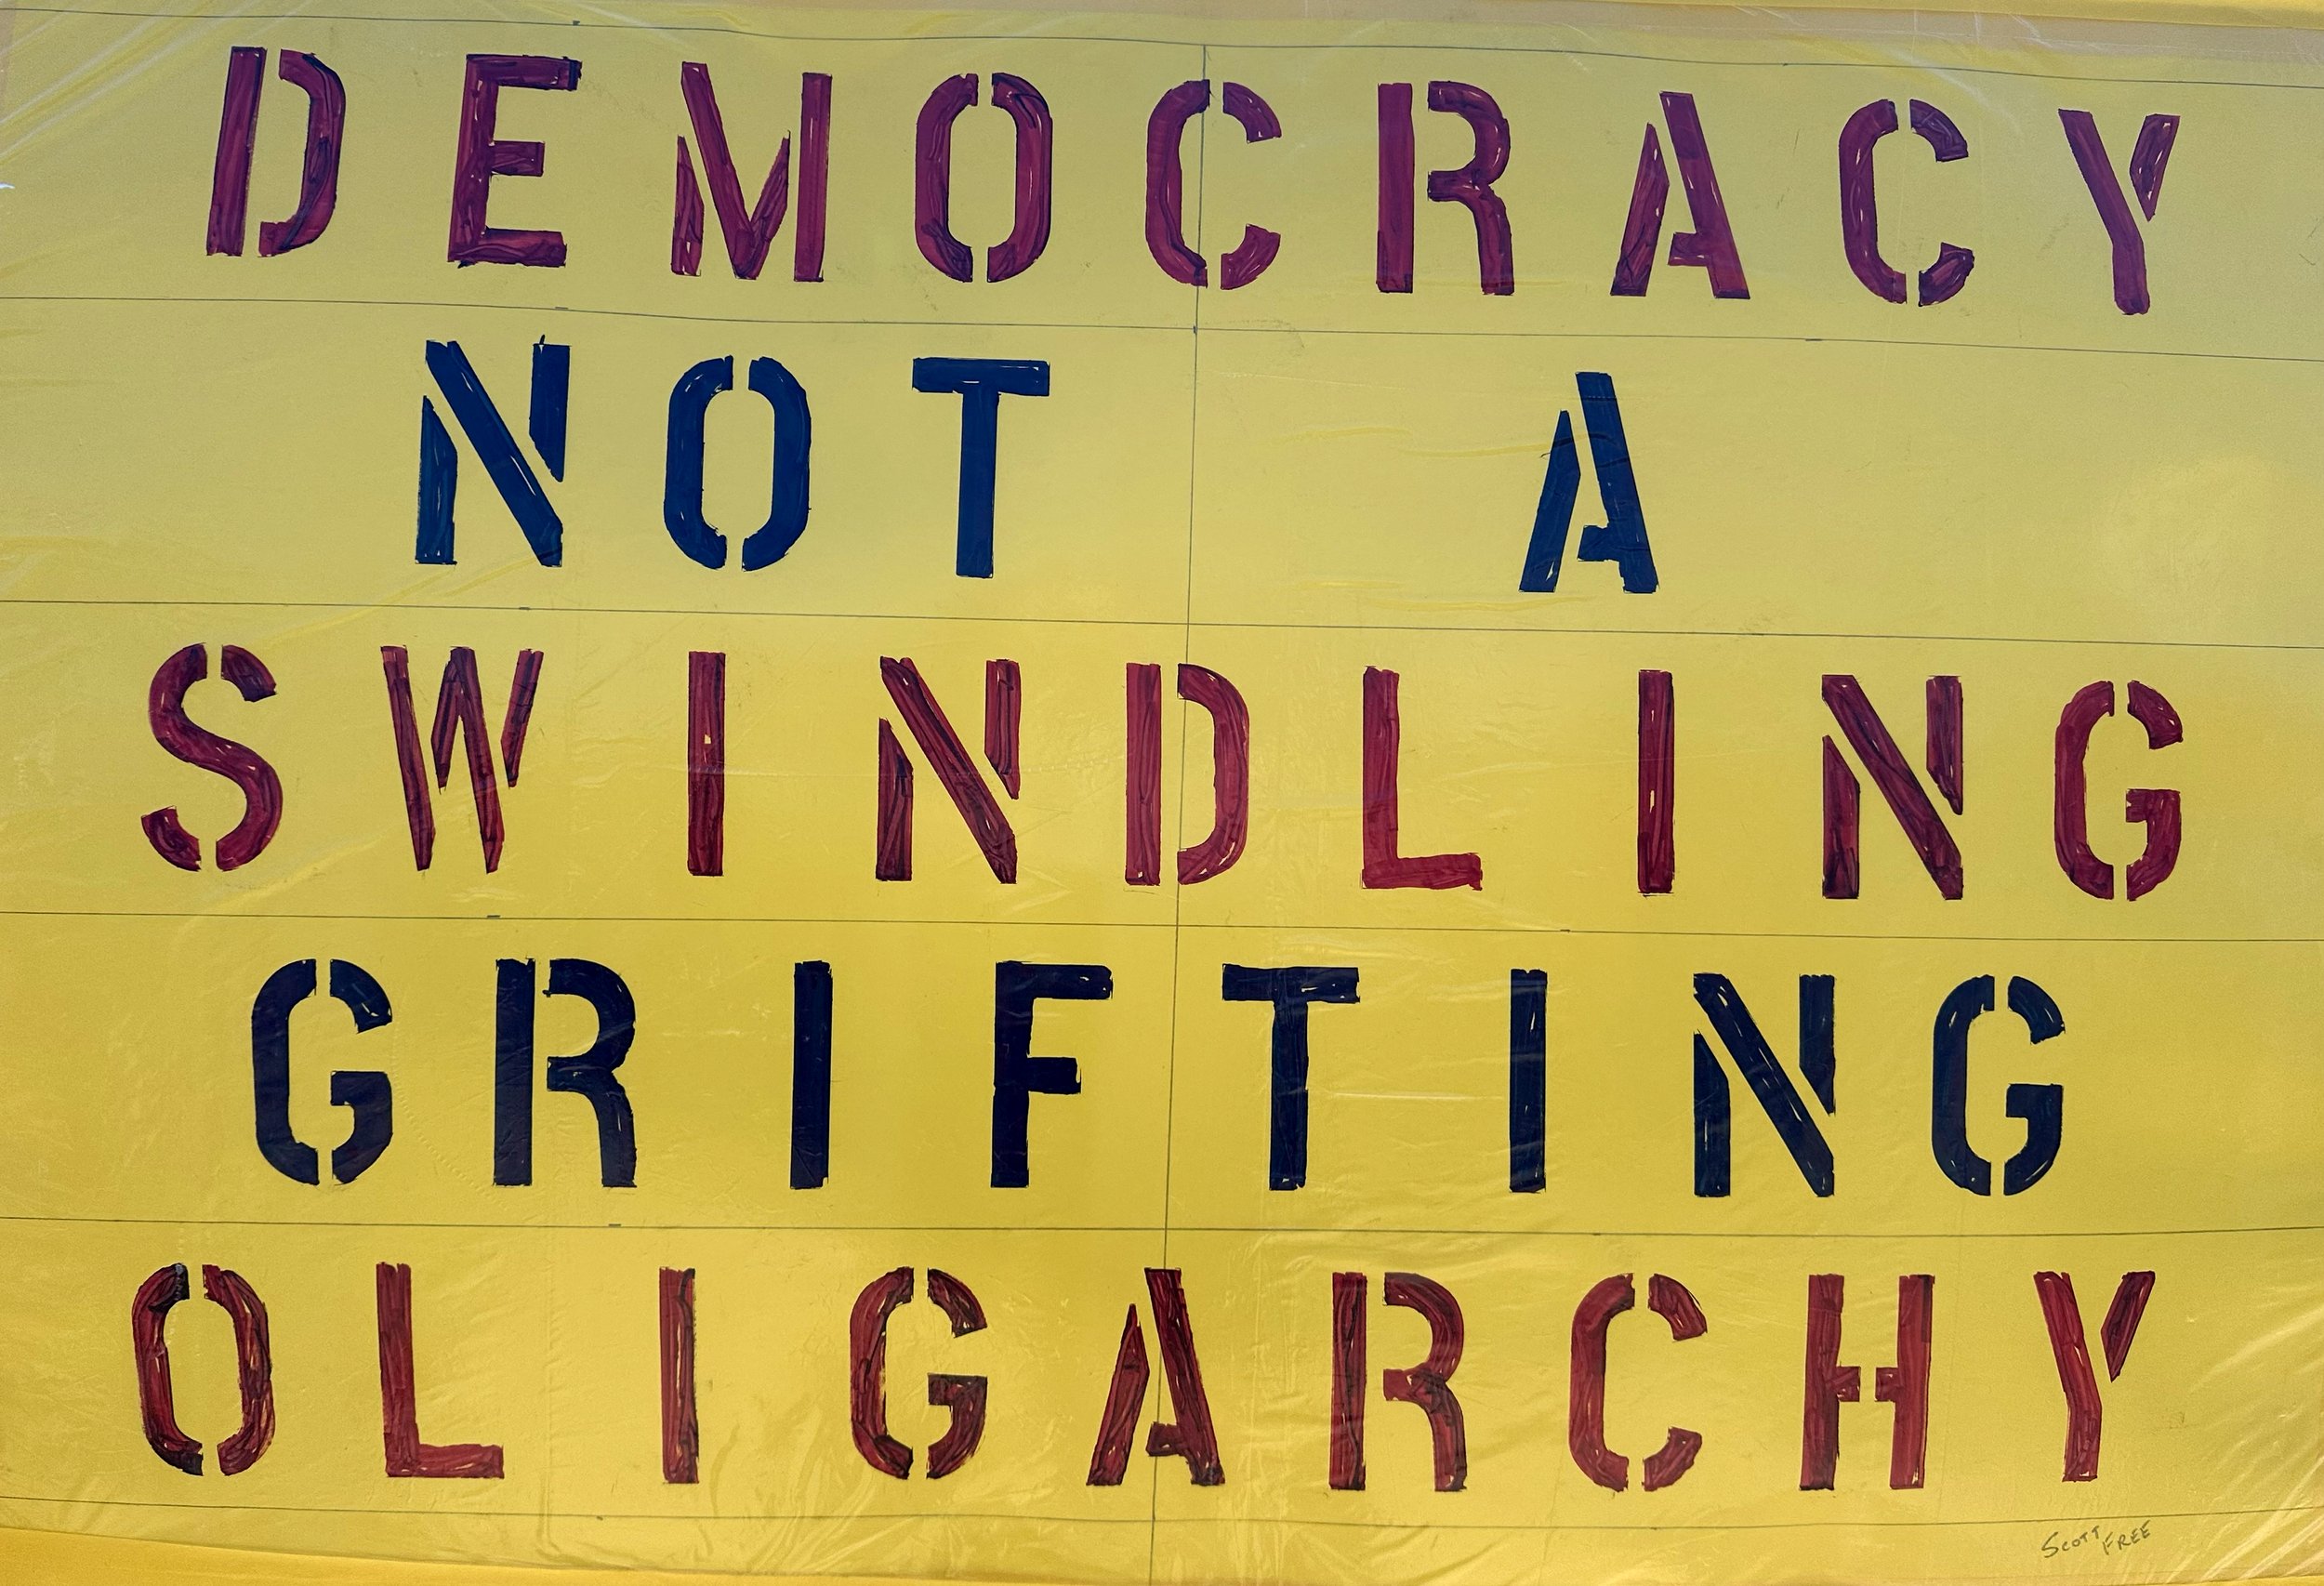 DEMOCRACY
NOT A
SWINDLING
GRIFTING
OLIGARCHY
SCOTT FREE